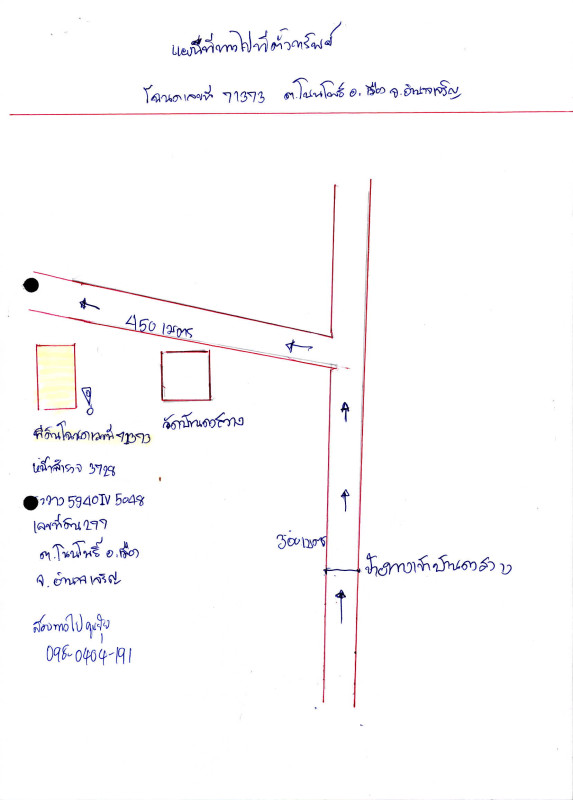 แผนที่ทางไปที่ตั้งทรัพย์
โฉนดเลขที่ 71373 ต.โนนโพธิ์ อ.เมือง จ.อำนาจเจริญ
450 เมตร
วัดบ้านดงสว่าง
ที่ดินโฉนดเลขที่ 71373
หน้าสำรวจ 3728
ระวาง 5940 IV 5048
เลขที่ดิน 299
ต.โนนโพธิ์ อ.เมือง
จ.อำนาจเจริญ
300 เมตร
ป้ายทางเข้าบ้าน
สอบทางไป
-0404-191